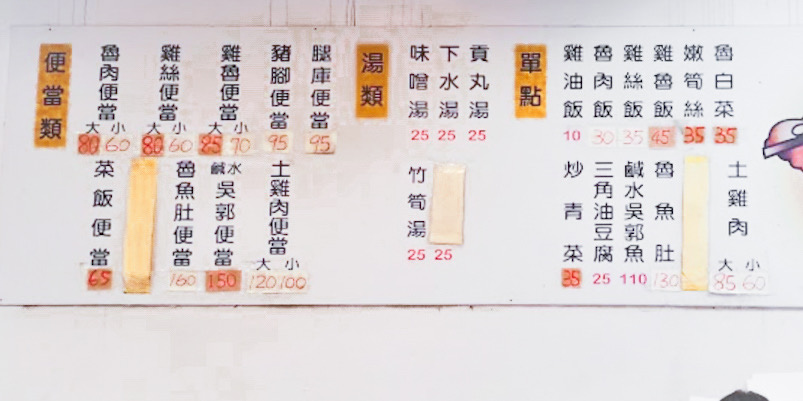 便當類
魯肉便當 大 小 80 60
雞絲便當 大 小 80 60
雞魯便當 大 小 85 70
豬腳便當 95
腿庫便當 95
菜飯便當 65
魯魚肚便當 160
鹹水吳郭便當 150
土雞肉便當 大 小 120 100
湯類
味噌湯 25
下水湯 25
貢丸湯 25
竹筍湯 25
25
單點
雞油飯 10
魯肉飯 30
雞絲飯 35
雞魯飯 45
嫩筍絲 35
魯白菜 35
炒青菜 35
三角油豆腐 25
鹹水吳郭魚 110
魯魚肚 130
土雞肉 大 小 85 60